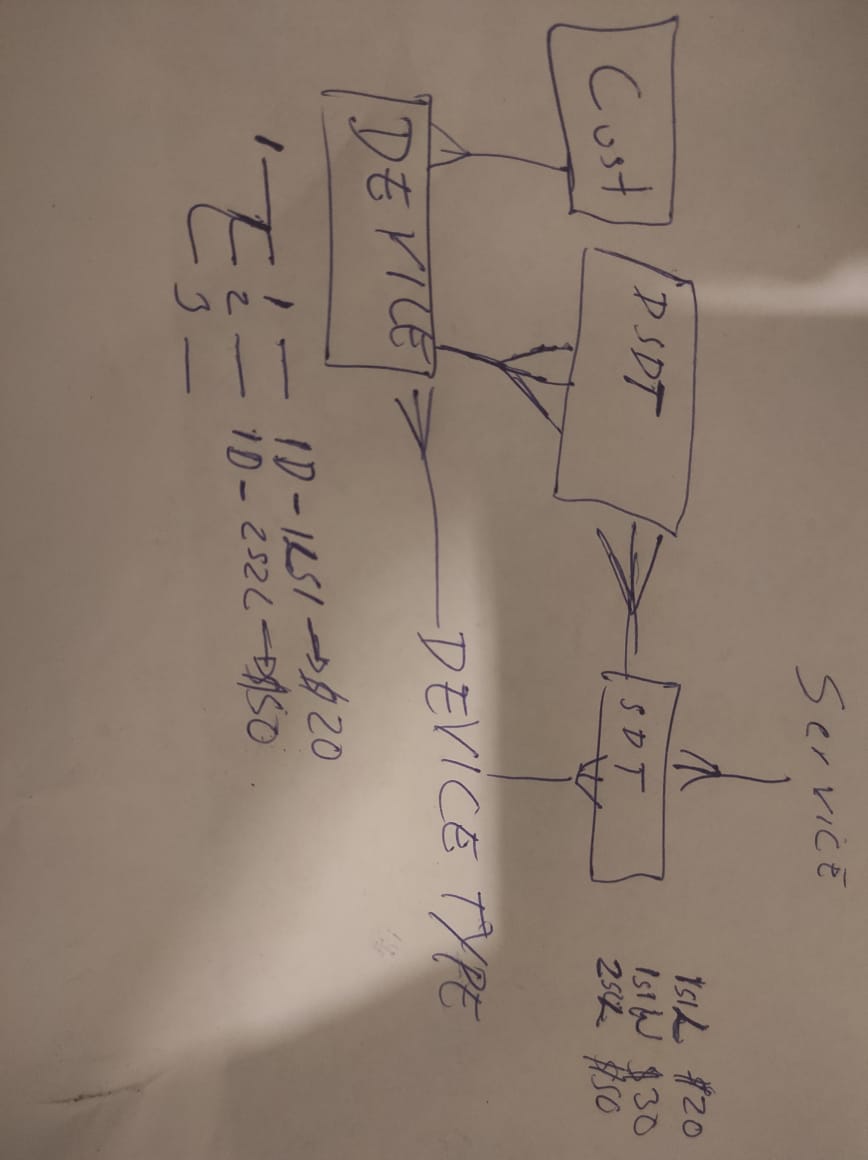 Service
Cust
DSDT
SDT
1S1L $20
1S1W $30
2S2L $50
DEVICE TYPE
DEVICE
1 1 — 1D-1LS1 → $20
2 — 1D-2S2L → $50
3 —